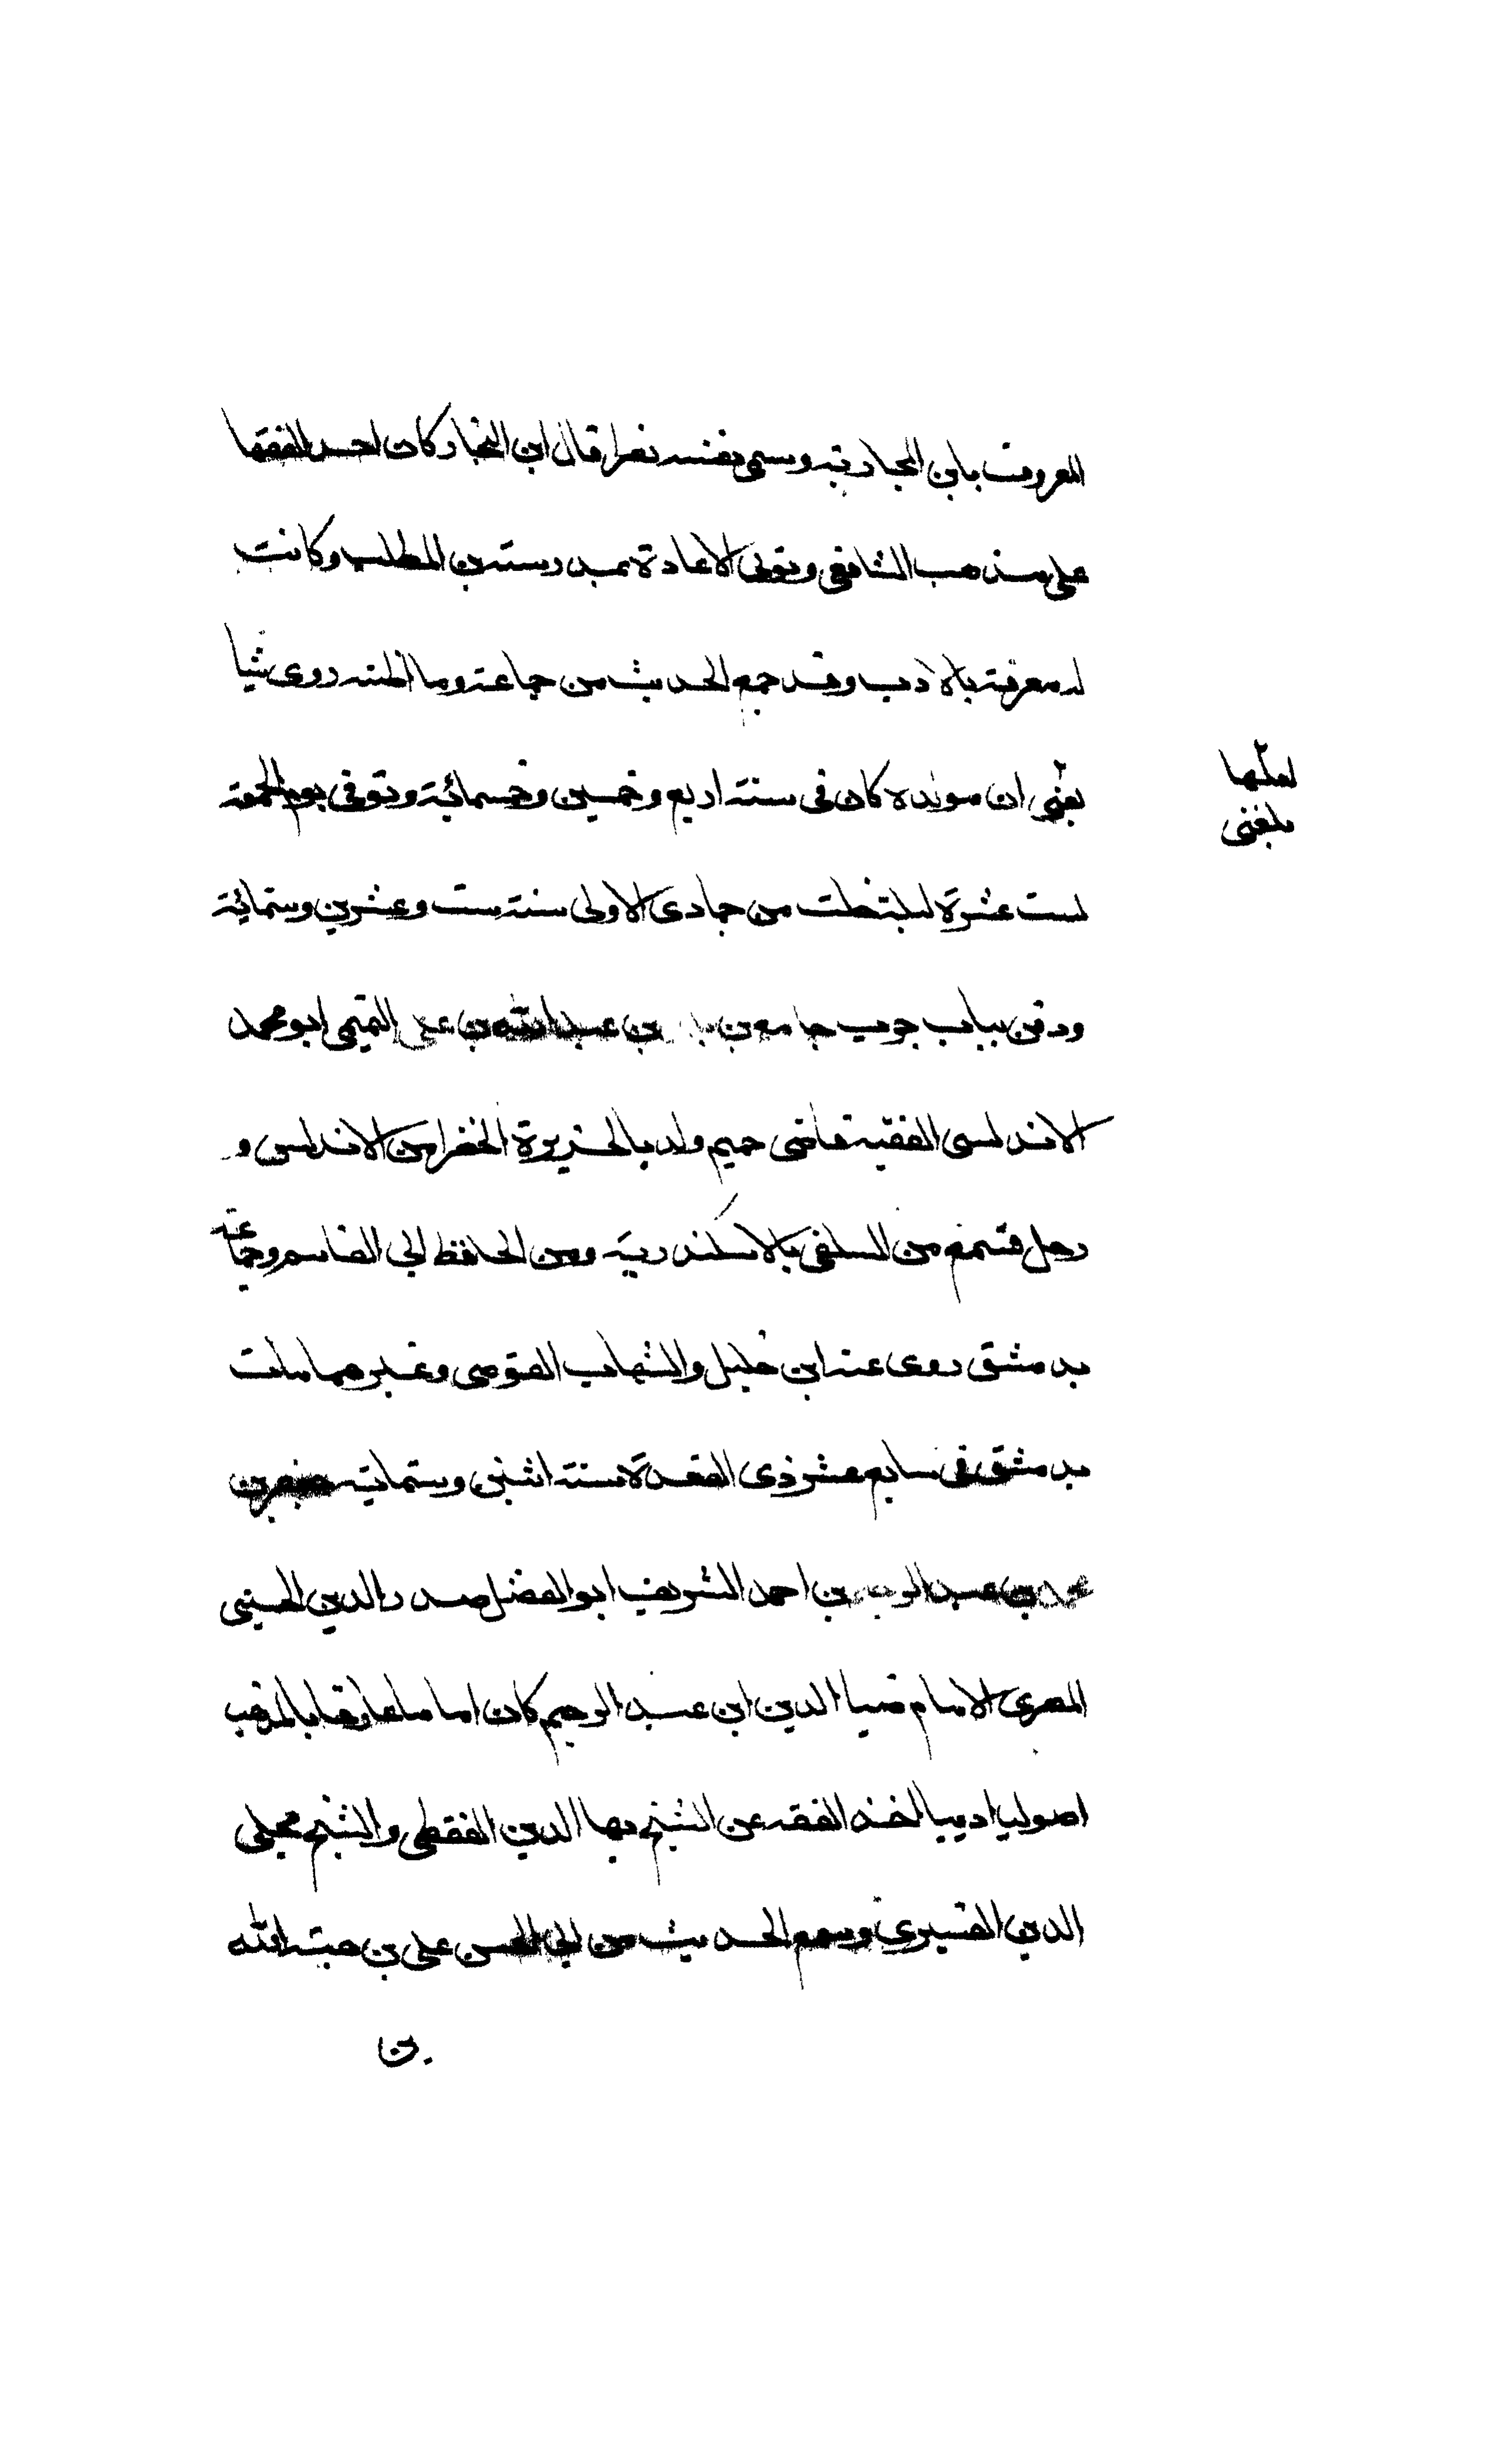 المعروف بابن الجارية وسمى نفسه نصرا قال ابن النجار كان احد الفقها
على مذهب الشافعى وتولى الاعادة بمدرسته بن المطلب وكانت
له معرفة بالادب وقد جمع الحديث من جماعة وما اظنه روى شيا
بغنى ان مولده كان فى سنة اربع وخمسين وخسمائة وتوفى يوم الجمعة
لعلها
بلغنى
لست عشرة ليلة خلت من جمادى الاولى سنة ست وعشرين وستمائة
ودفن بباب حرب جامع بن بن عبد الله بن على التميمى ابو محمد
الاندلسى الفقيه قاضى حميم ولد بالجزيرة الخضرا من الاندلس و
رحل فسمع من السلفى بالاسكندرية ومن الحافظ ابى القاسم وجماعة
بدمشق روى عنه ابن خليل والشهاب القوصى وغيرهما مات
بدمشق فى سابع عشر ذى القعدة سنة اثنين وستماية جعفر بن
محمد بن عبد الرحيم بن احمد الشريف ابو الفضل صدر الدين الحسينى
المصرى الامام ضيا الدين ابن عبد الرحيم كان اماما عارفا بالمذهب
اصوليا اديبا اخذ الفقه عن الشيخ بها الدين القفطى والشيخ مجلى
الدين القشيرى وسمع الحديث من ابى الحسن على بن هبة الله
بن